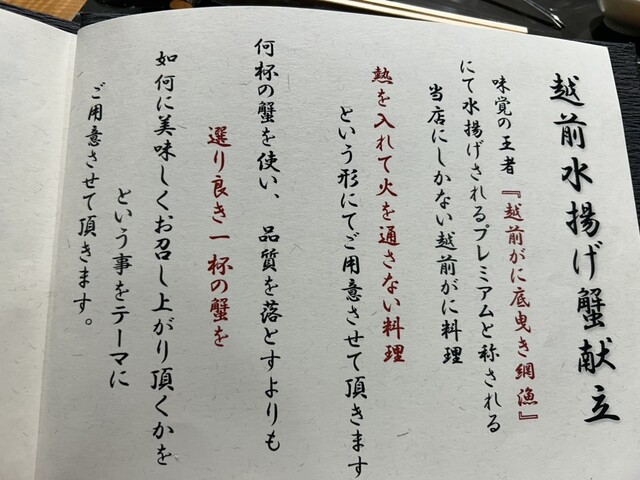 越前水揚げ蟹献立
味覚の王者『越前がに底曳き網漁』
にて水揚げされるプレミアムと称される
当店にしかない越前がに料理
熱を入れて火を通さない料理
という形にてご用意させて頂きます
何杯の蟹を使い、品質を落とすよりも
選り良き一杯の蟹を
如何に美味しくお召し上がり頂くかを
という事をテーマに
ご用意させて頂きます。